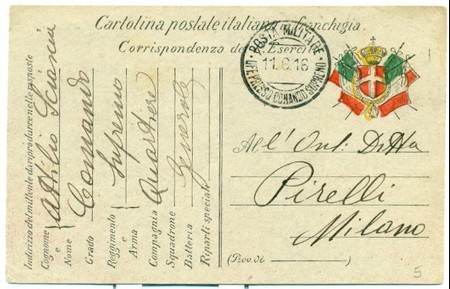 Cartolina postale italiana in franchigia.
Corrispondenza del R. Esercito
POSTA MILITARE
11.6.16
COMANDO SUPREMO
Indirizzo del mittente da riprodurre nelle risposte
Cognome e Nome Attilio
Grado Comando
Reggimento e Arma Supremo
Compagnia Quartiere
Squadrone Generale
Batteria
Riparti speciali
All' On: Ditta
Pirelli
Milano
(Prov. di
5